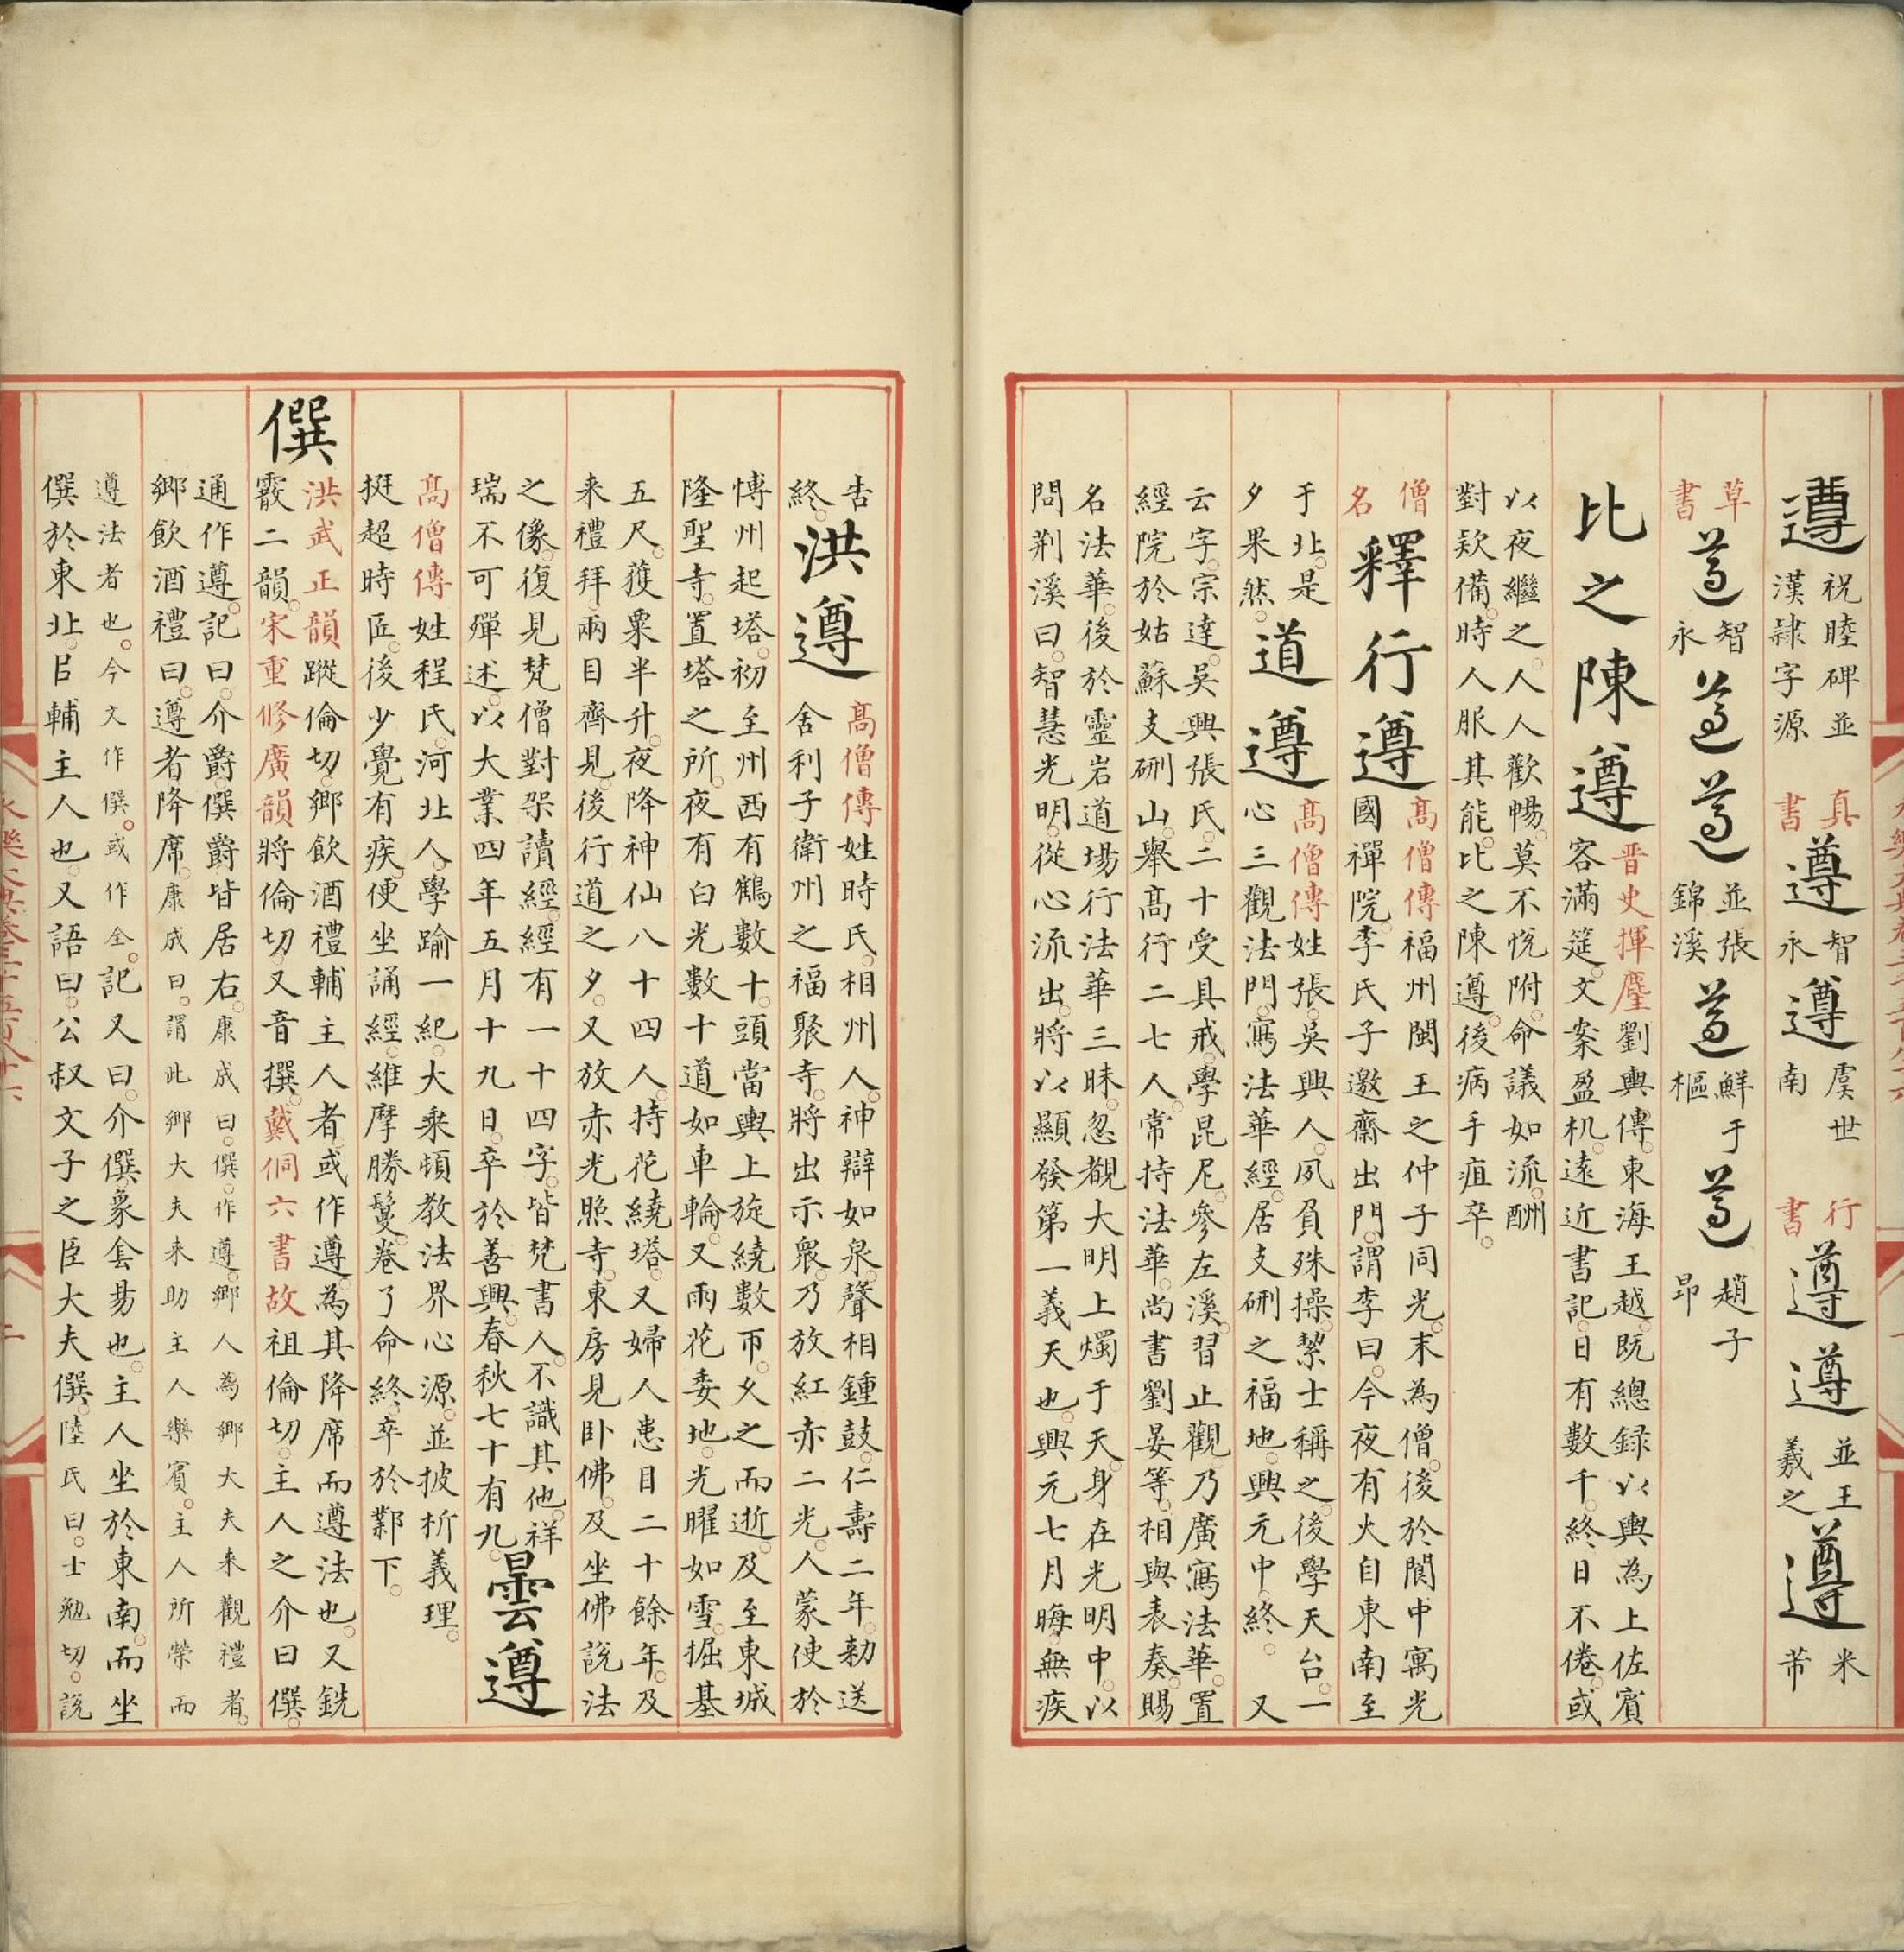 遵
祝睦碑並
漢隸字源
真
書
遵
智
永
遵
虞世
南
行
書
遵
遵
並王
羲之
遵
米
芾
草
書
遵
智
永
遵
遵
並張
錦溪
遵
鮮于
樞
遵
趙子
昂
比之陳遵
晋史揮麈劉輿傳東海王越既總録以輿為上佐賓
客滿筵文案盈机遠近書記日有數千終日不倦或
以夜繼之人人歡暢莫不悅附命議如流酬
對欵備時人服其能比之陳遵後病手疽卒
僧
名
釋行遵
髙僧傳福州閩王之仲子同光末為僧後於閬中寓光
國禪院李氏子邀齋出門謂李曰今夜有火自東南至
于北是
夕果然
道遵
髙僧傳姓張吳興人夙負殊操挈士稱之後學天台一
心三觀法門寫法華經居支硎之福地興元中終 又
云字宗達吳興張氏二十受具戒學昆尼參左溪習止觀乃廣寫法華置
經院於姑蘇支硎山舉髙行二七人常持法華尚書劉晏等相與表奏賜
名法華後於靈岩道場行法華三昧忽覩大明上燭于天身在光明中以
問荆溪曰智慧光明從心流出將以顯發第一義天也興元七月晦無疾
告
終
洪遵
髙僧傳姓時氏相州人神辯如泉聲相鍾鼓仁壽二年勑送
舍利子衛州之福聚寺將出示衆乃放紅赤二光人蒙使於
愽州起塔初至州西有鶴數十頭當輿上旋繞數帀久之而逝及至東城
隆聖寺置塔之所夜有白光數十道如車輪又雨花委地光曜如雪掘基
五尺獲粟半升夜降神仙八十四人持花繞塔又婦人患目二十餘年及
来禮拜兩目齊見後行道之夕又放赤光照寺東房見卧佛及坐佛説法
之像復見梵僧對架讀經經有一十四字皆梵書人不識其他祥
瑞不可殫述以大業四年五月十九日卒於善興春秋七十有九
曇遵
髙僧傳姓程氏河北人學踰一紀大乘頓教法界心源並披析義理
挺超時匠後少覺有疾便坐誦經維摩勝鬘卷了命終卒於鄴下
僎
洪武正韻蹤倫切鄉飲酒禮輔主人者或作遵為其降席而遵法也又銑
霰二韻宋重修廣韻將倫切又音撰戴侗六書故祖倫切主人之介曰僎
通作遵記曰介爵僎爵皆居右康成曰僎作遵鄉人為鄉大夫来觀禮者
鄉飲酒禮曰遵者降席康成曰謂此鄉大夫来助主人樂賓主人所榮而
遵法者也今文作僎或作全記又曰介僎象套昜也主人坐於東南而坐
僎於東北㠯輔主人也又語曰公叔文子之臣大夫僎陸氏曰士勉切説